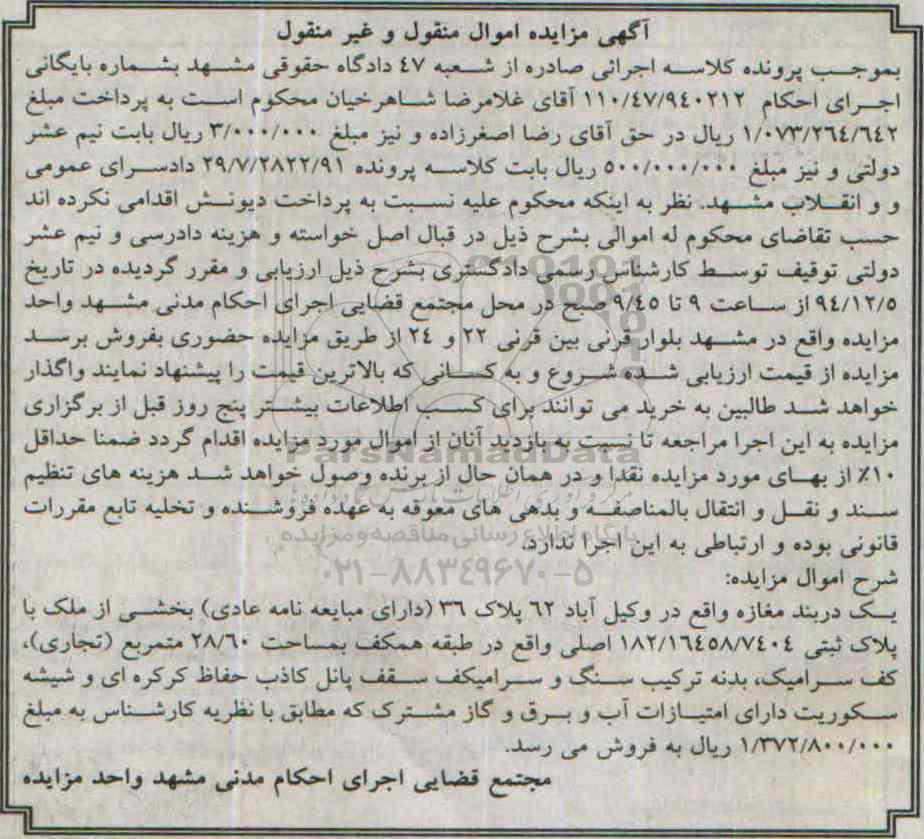 آگهی مزایده اموال منقول و غیر منقول
بموجب پرونده کلاسه اجرائی صادره از شعبه ٤٧ دادگاه حقوقی مشهد بشماره بایگانی
اجرای احکام ١١٠/٤٧/٩٤٠٢١٢ آقای غلامرضا شاهرخیان محکوم است به پرداخت مبلغ
١/٠٧٣/٢٦٤/٦٤٢ ریال در حق آقای رضا اصغرزاده و نیز مبلغ ٣/٠٠٠/٠٠٠ ریال بابت نیم عشر
دولتی و نیز مبلغ ٥٠٠/٠٠٠/٠٠٠ ریال بابت کلاسه پرونده ٢٩/٧/٢٨٢٢/٩١ دادسرای عمومی
و و انقلاب مشهد. نظر به اینکه محکوم علیه نسبت به پرداخت دیونش اقدامی نکرده اند
حسب تقاضای محکوم له اموالی بشرح ذیل در قبال اصل خواسته و هزینه دادرسی و نیم عشر
دولتی توقیف توسط کارشناس رسمی دادگستری بشرح ذیل ارزیابی و مقرر گردیده در تاریخ
٩٤/١٢/٥ از ساعت ٩ تا ٩/٤٥ صبح در محل مجتمع قضایی اجرای احکام مدنی مشهد واحد
مزایده واقع در مشهد بلوار قرنی بین قرنی ٢٢ و ٢٤ از طریق مزایده حضوری بفروش برسد
مزایده از قیمت ارزیابی شده شروع و به کسانی که بالاترین قیمت را پیشنهاد نمایند واگذار
خواهد شد طالبین به خرید می توانند برای کسب اطلاعات بیشتر پنج روز قبل از برگزاری
مزایده به این اجرا مراجعه تا نسبت به بازدید آنان از اموال مورد مزایده اقدام گردد ضمنا حداقل
١٠٪ از بهای مورد مزایده نقدا و در همان حال از برنده وصول خواهد شد هزینه های تنظیم
سند و نقل و انتقال بالمناصفه و بدهی های معوقه به عهده فروشنده و تخلیه تابع مقررات
قانونی بوده و ارتباطی به این اجرا ندارد.
شرح اموال مزایده:
یک دربند مغازه واقع در وکیل آباد ٦٢ پلاک ٣٦ (دارای مبایعه نامه عادی) بخشی از ملک با
پلاک ثبتی ١٨٢/١٦٤٥٨/٧٤٠٤ اصلی واقع در طبقه همکف بمساحت ٢٨/٦٠ متمربع (تجاری)،
کف سرامیک، بدنه ترکیب سنگ و سرامیکف سقف پانل کاذب حفاظ کرکره ای و شیشه
سکوریت دارای امتیازات آب و برق و گاز مشترک که مطابق با نظریه کارشناس به مبلغ
١/٣٧٢/٨٠٠/٠٠٠ ریال به فروش می رسد.
مجتمع قضایی اجرای احکام مدنی مشهد واحد مزایده
ParsNamadData
پایگاه اطلاع رسانی مناقصه و مزایده
۰۲۱-۸۸۳۴۹۶۷۰-۵